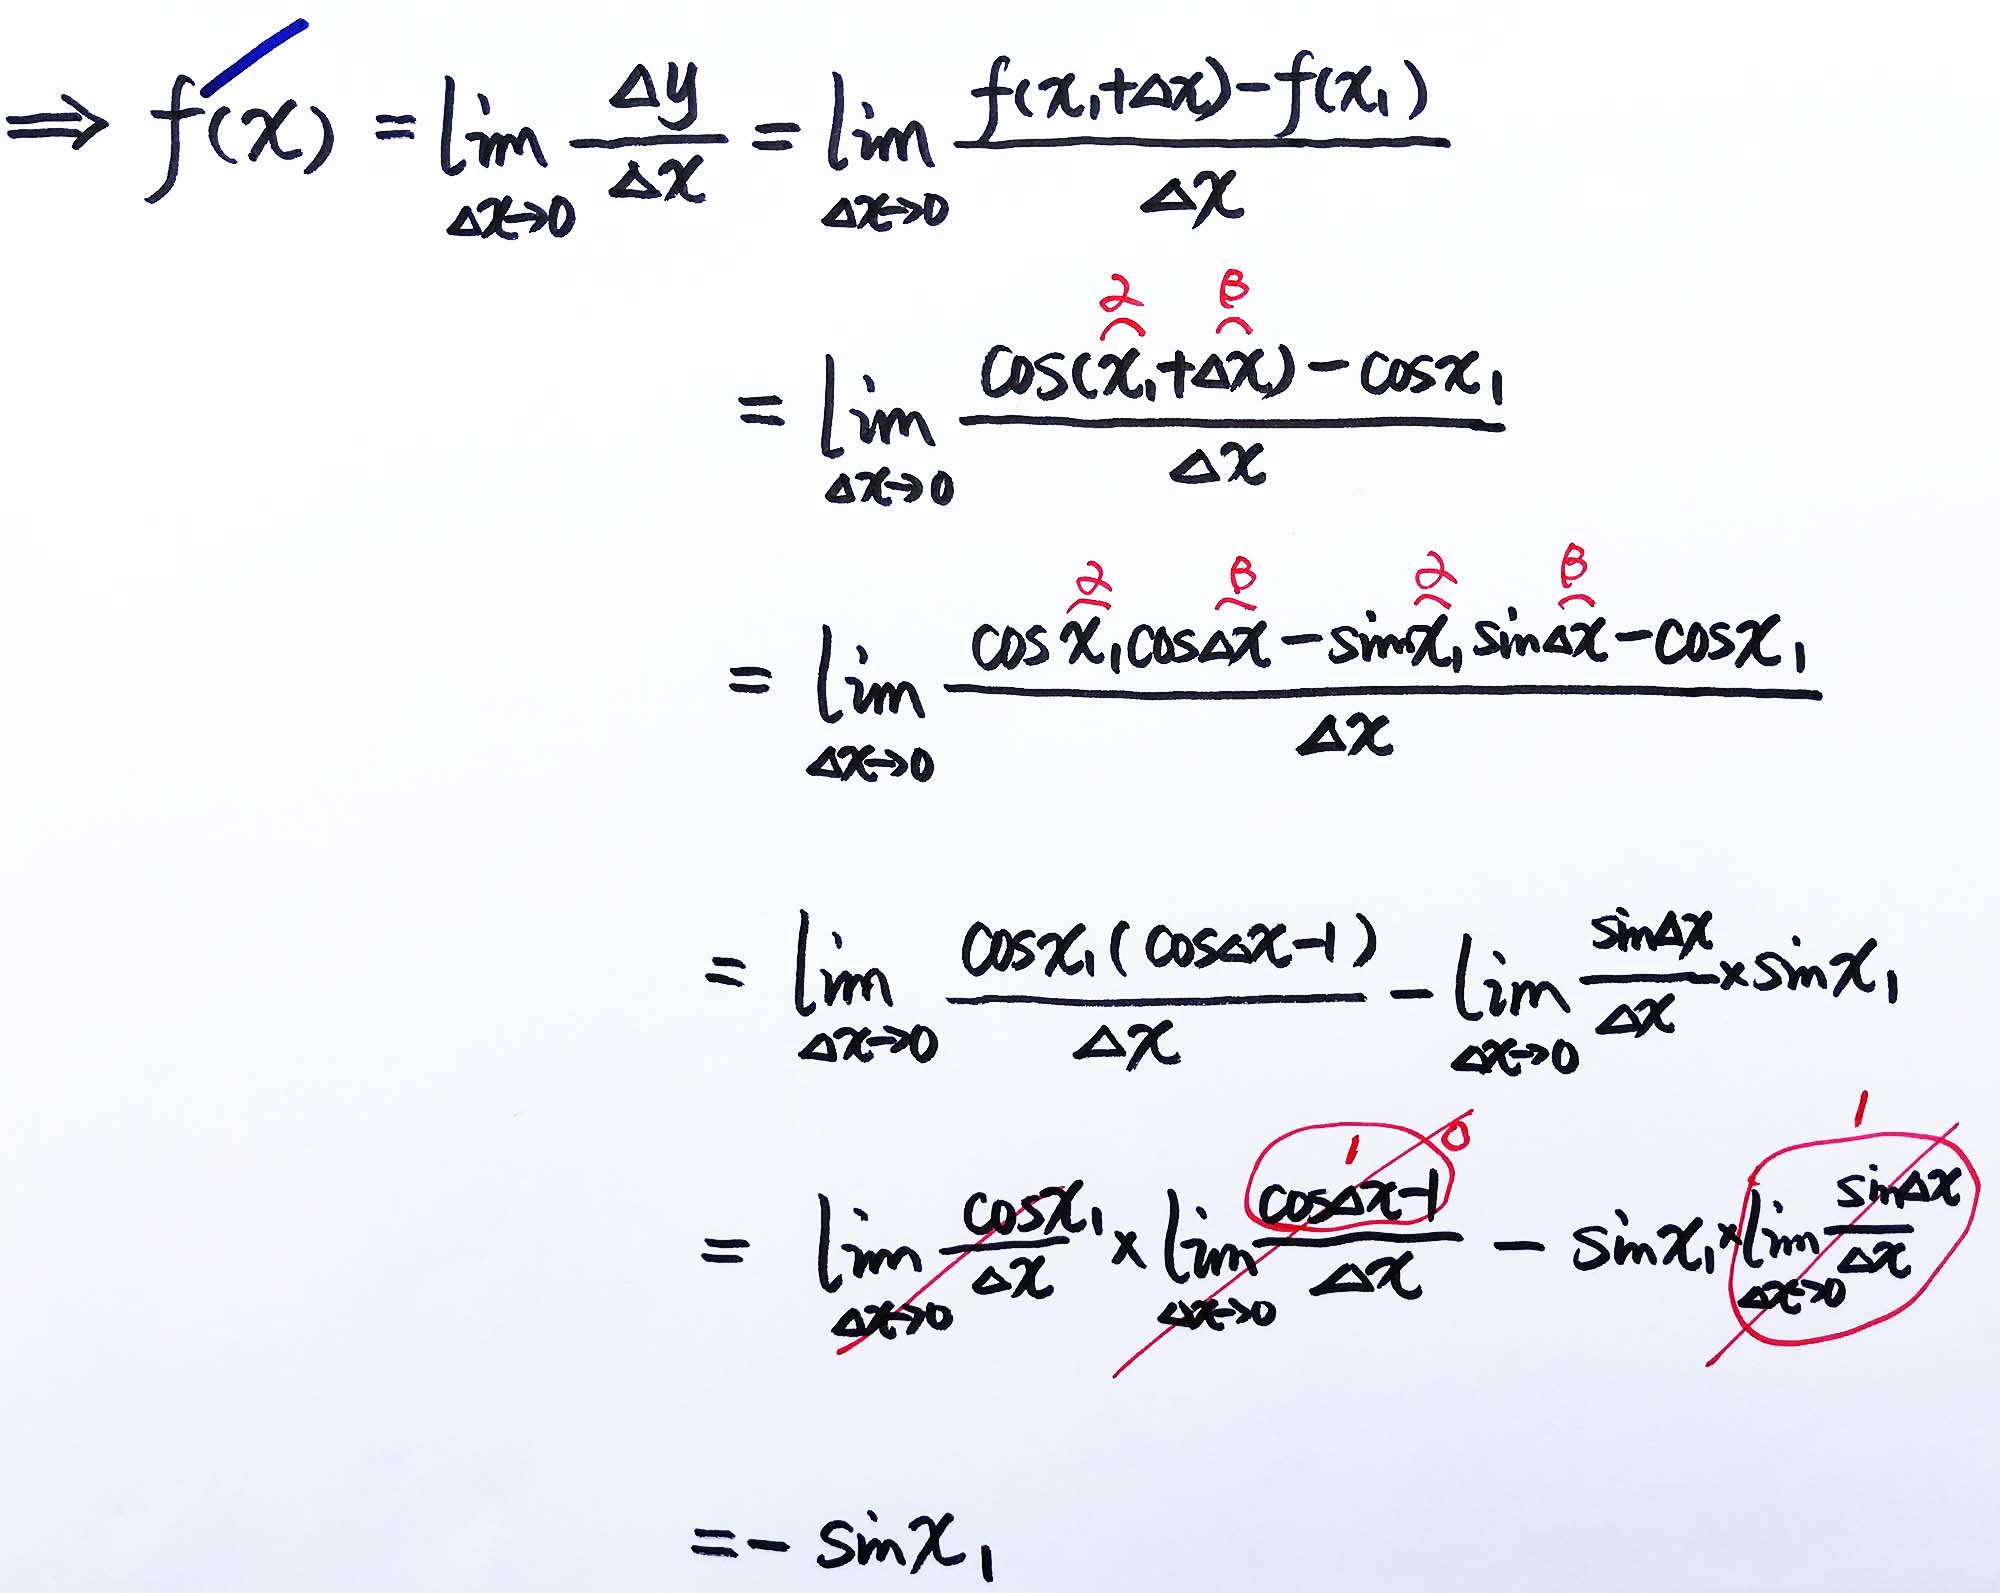 ⇒ f′(x) = lim_{Δx→0} Δy/Δx = lim_{Δx→0} (f(x₁+Δx)−f(x₁))/Δx
α β
= lim_{Δx→0} (cos(x₁+Δx)−cosx₁)/Δx
α β α β
= lim_{Δx→0} (cosx₁cosΔx−sinx₁sinΔx−cosx₁)/Δx
= lim_{Δx→0} cosx₁(cosΔx−1)/Δx − lim_{Δx→0} sinΔx/Δx × sinx₁
1 0 1
= lim_{Δx→0} cosx₁/Δx × lim_{Δx→0} (cosΔx−1)/Δx − sinx₁ × lim_{Δx→0} sinΔx/Δx
= − sinx₁